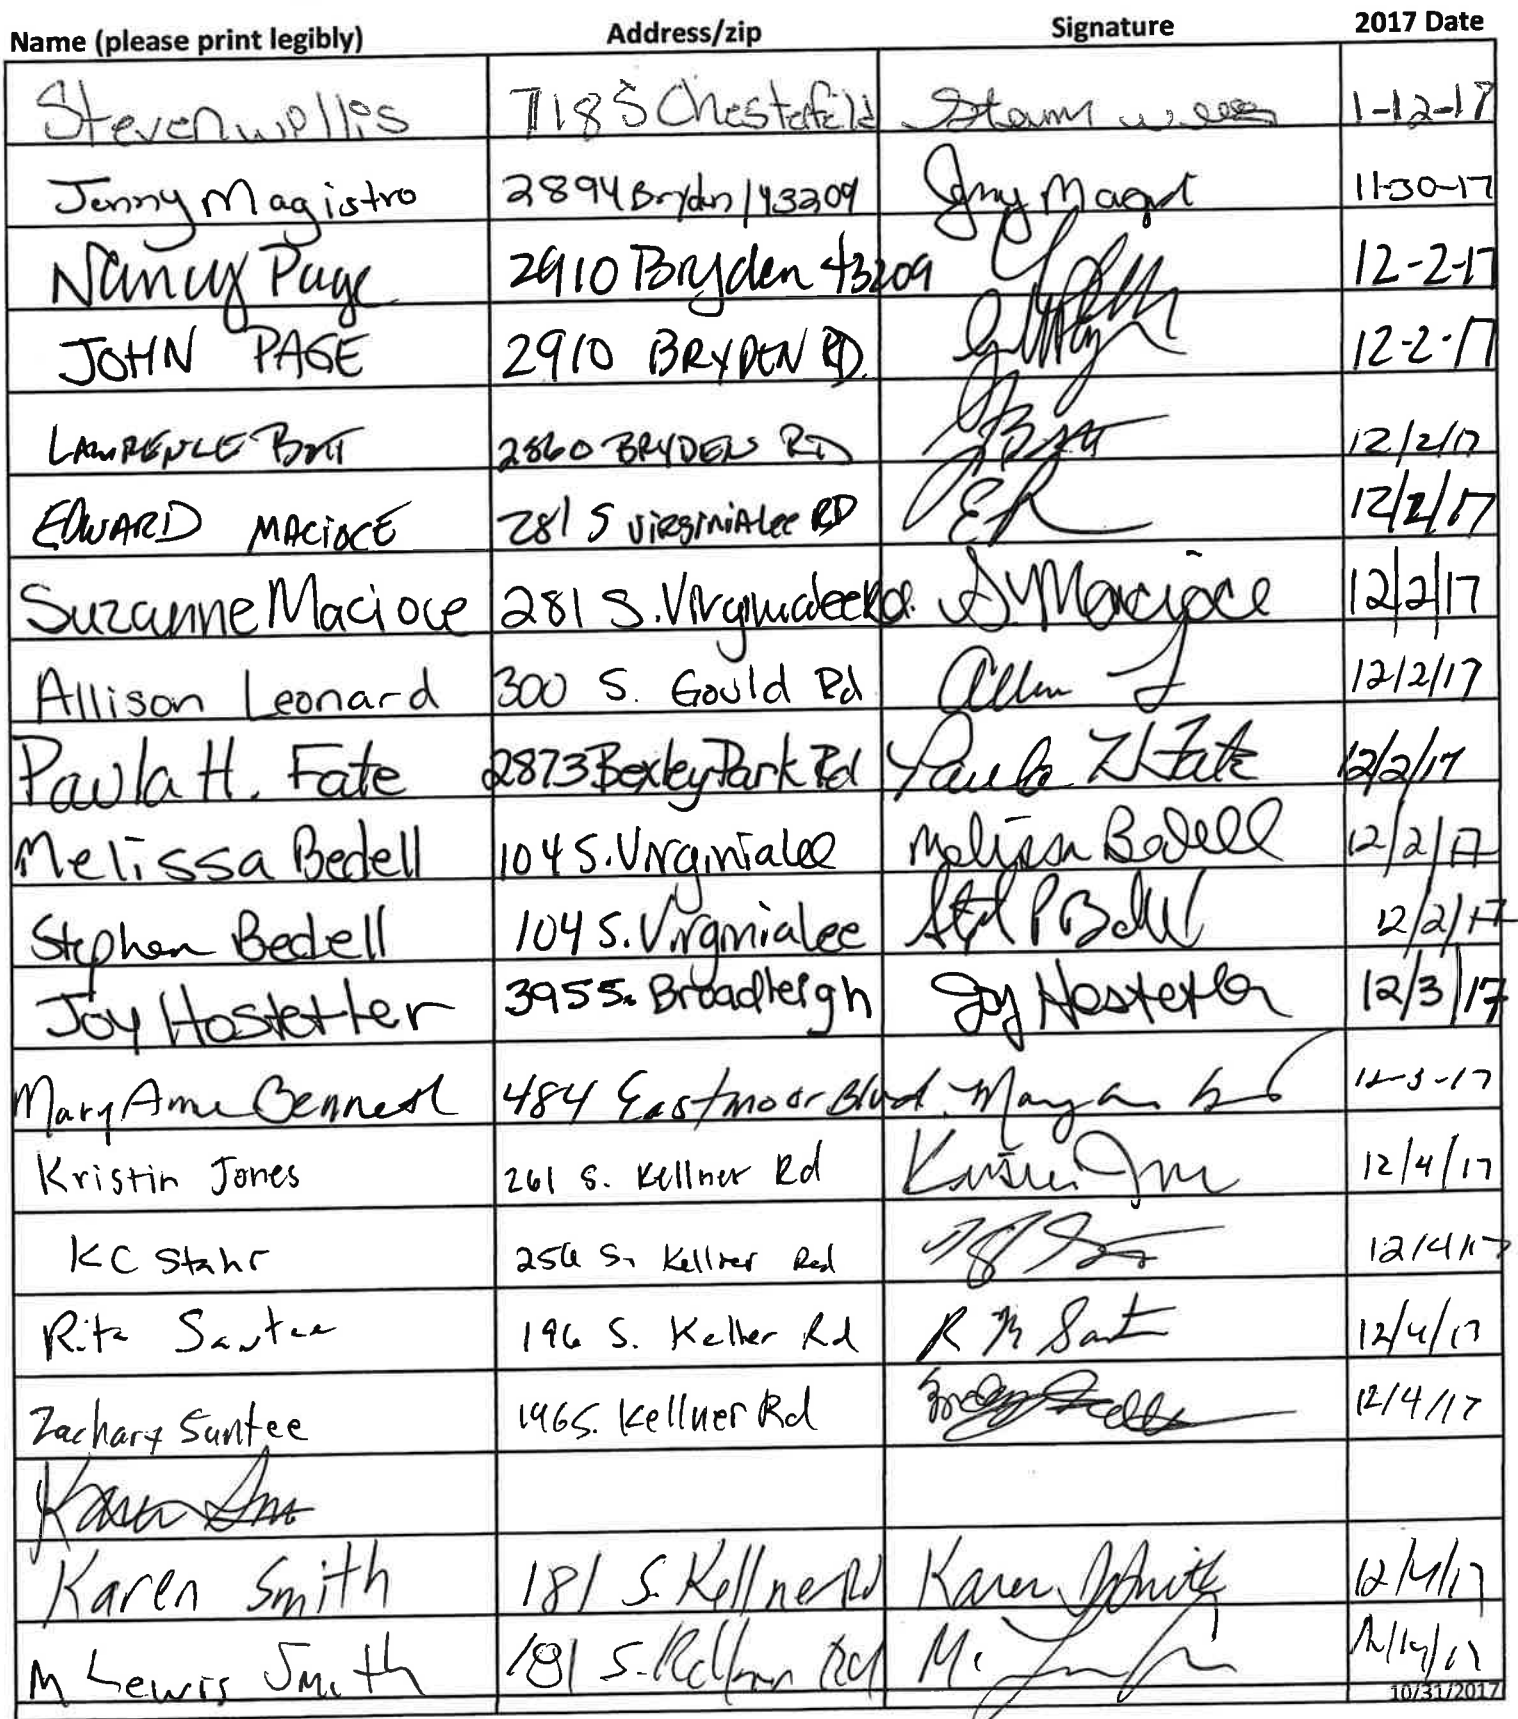 Name (please print legibly) Address/zip Signature 2017 Date
Steven Willis 718 S Chesterfield 1-12-17
Jenny Magistro 2894 Bryden / 43209 Jenny Magist 11-30-17
Nancy Page 2910 Bryden 43209 12-2-17
JOHN PAGE 2910 BRYDEN RD. 12-2-17
LAWRENCE BOTT 2860 BRYDEN RD 12/2/17
EDWARD MACIOCE 281 S VIRGINIALee RD 12/2/17
Suzanne Macioce 281 S. Virginialee Rd. S Macioce 12/2/17
Allison Leonard 300 S. Gould Rd 12/2/17
Paula H. Fate 2873 Bexley Park Rd Paula H Fate 12/2/17
Melissa Bedell 104 S. Virginialee Melissa Bedell 12/2/17
Stephen Bedell 104 S. Virginialee 12/2/17
Joy Hostetter 395 S. Broadleigh Joy Hostetter 12/3/17
Mary Anne Bennett 484 Eastmoor Blvd. 12-3-17
Kristin Jones 261 S. Kellner Rd 12/4/17
KC Stahr 256 S. Kellner Rd 12/4/17
Rita Santee 196 S. Kellner Rd R M Santee 12/4/17
Zachary Santee 196 S. Kellner Rd 12/4/17
Karen
Karen Smith 181 S. Kellner Rd Karen Smith 12/4/17
M Lewis Smith 181 S. Kellner Rd
10/31/2017